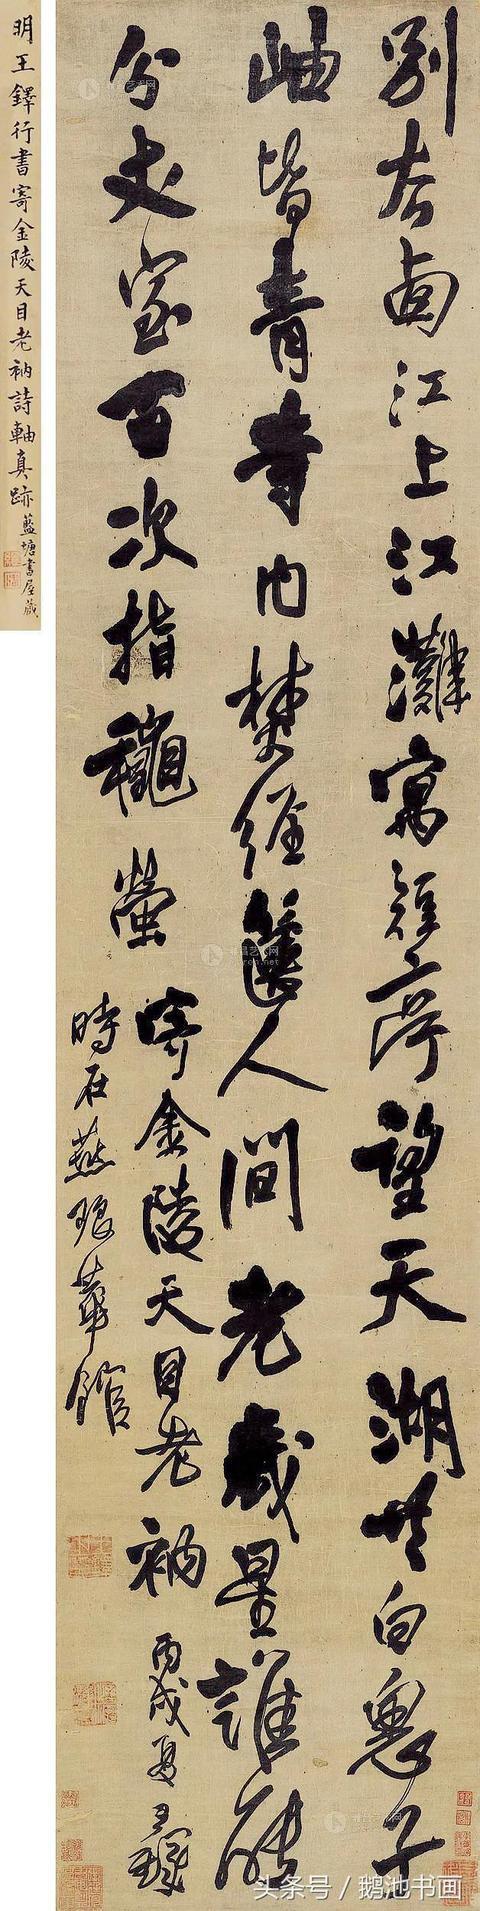 別去西江上江灘寫短亭望天湖共白子
岫皆青寺内焚經篋人間老歲星誰能
分丈室百次指龝螢 寄金陵天目老衲 丙戌夏王鐸
時在燕琅華館
明王鐸行書寄金陵天目老衲詩軸真跡 藍塘書屋藏
头条号／鹅池书画